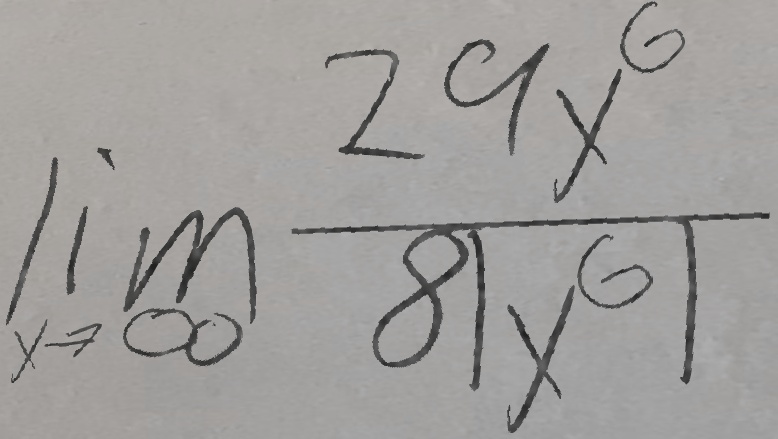 \lim_{y \to \infty} \frac{29y^6}{8|y^6|}